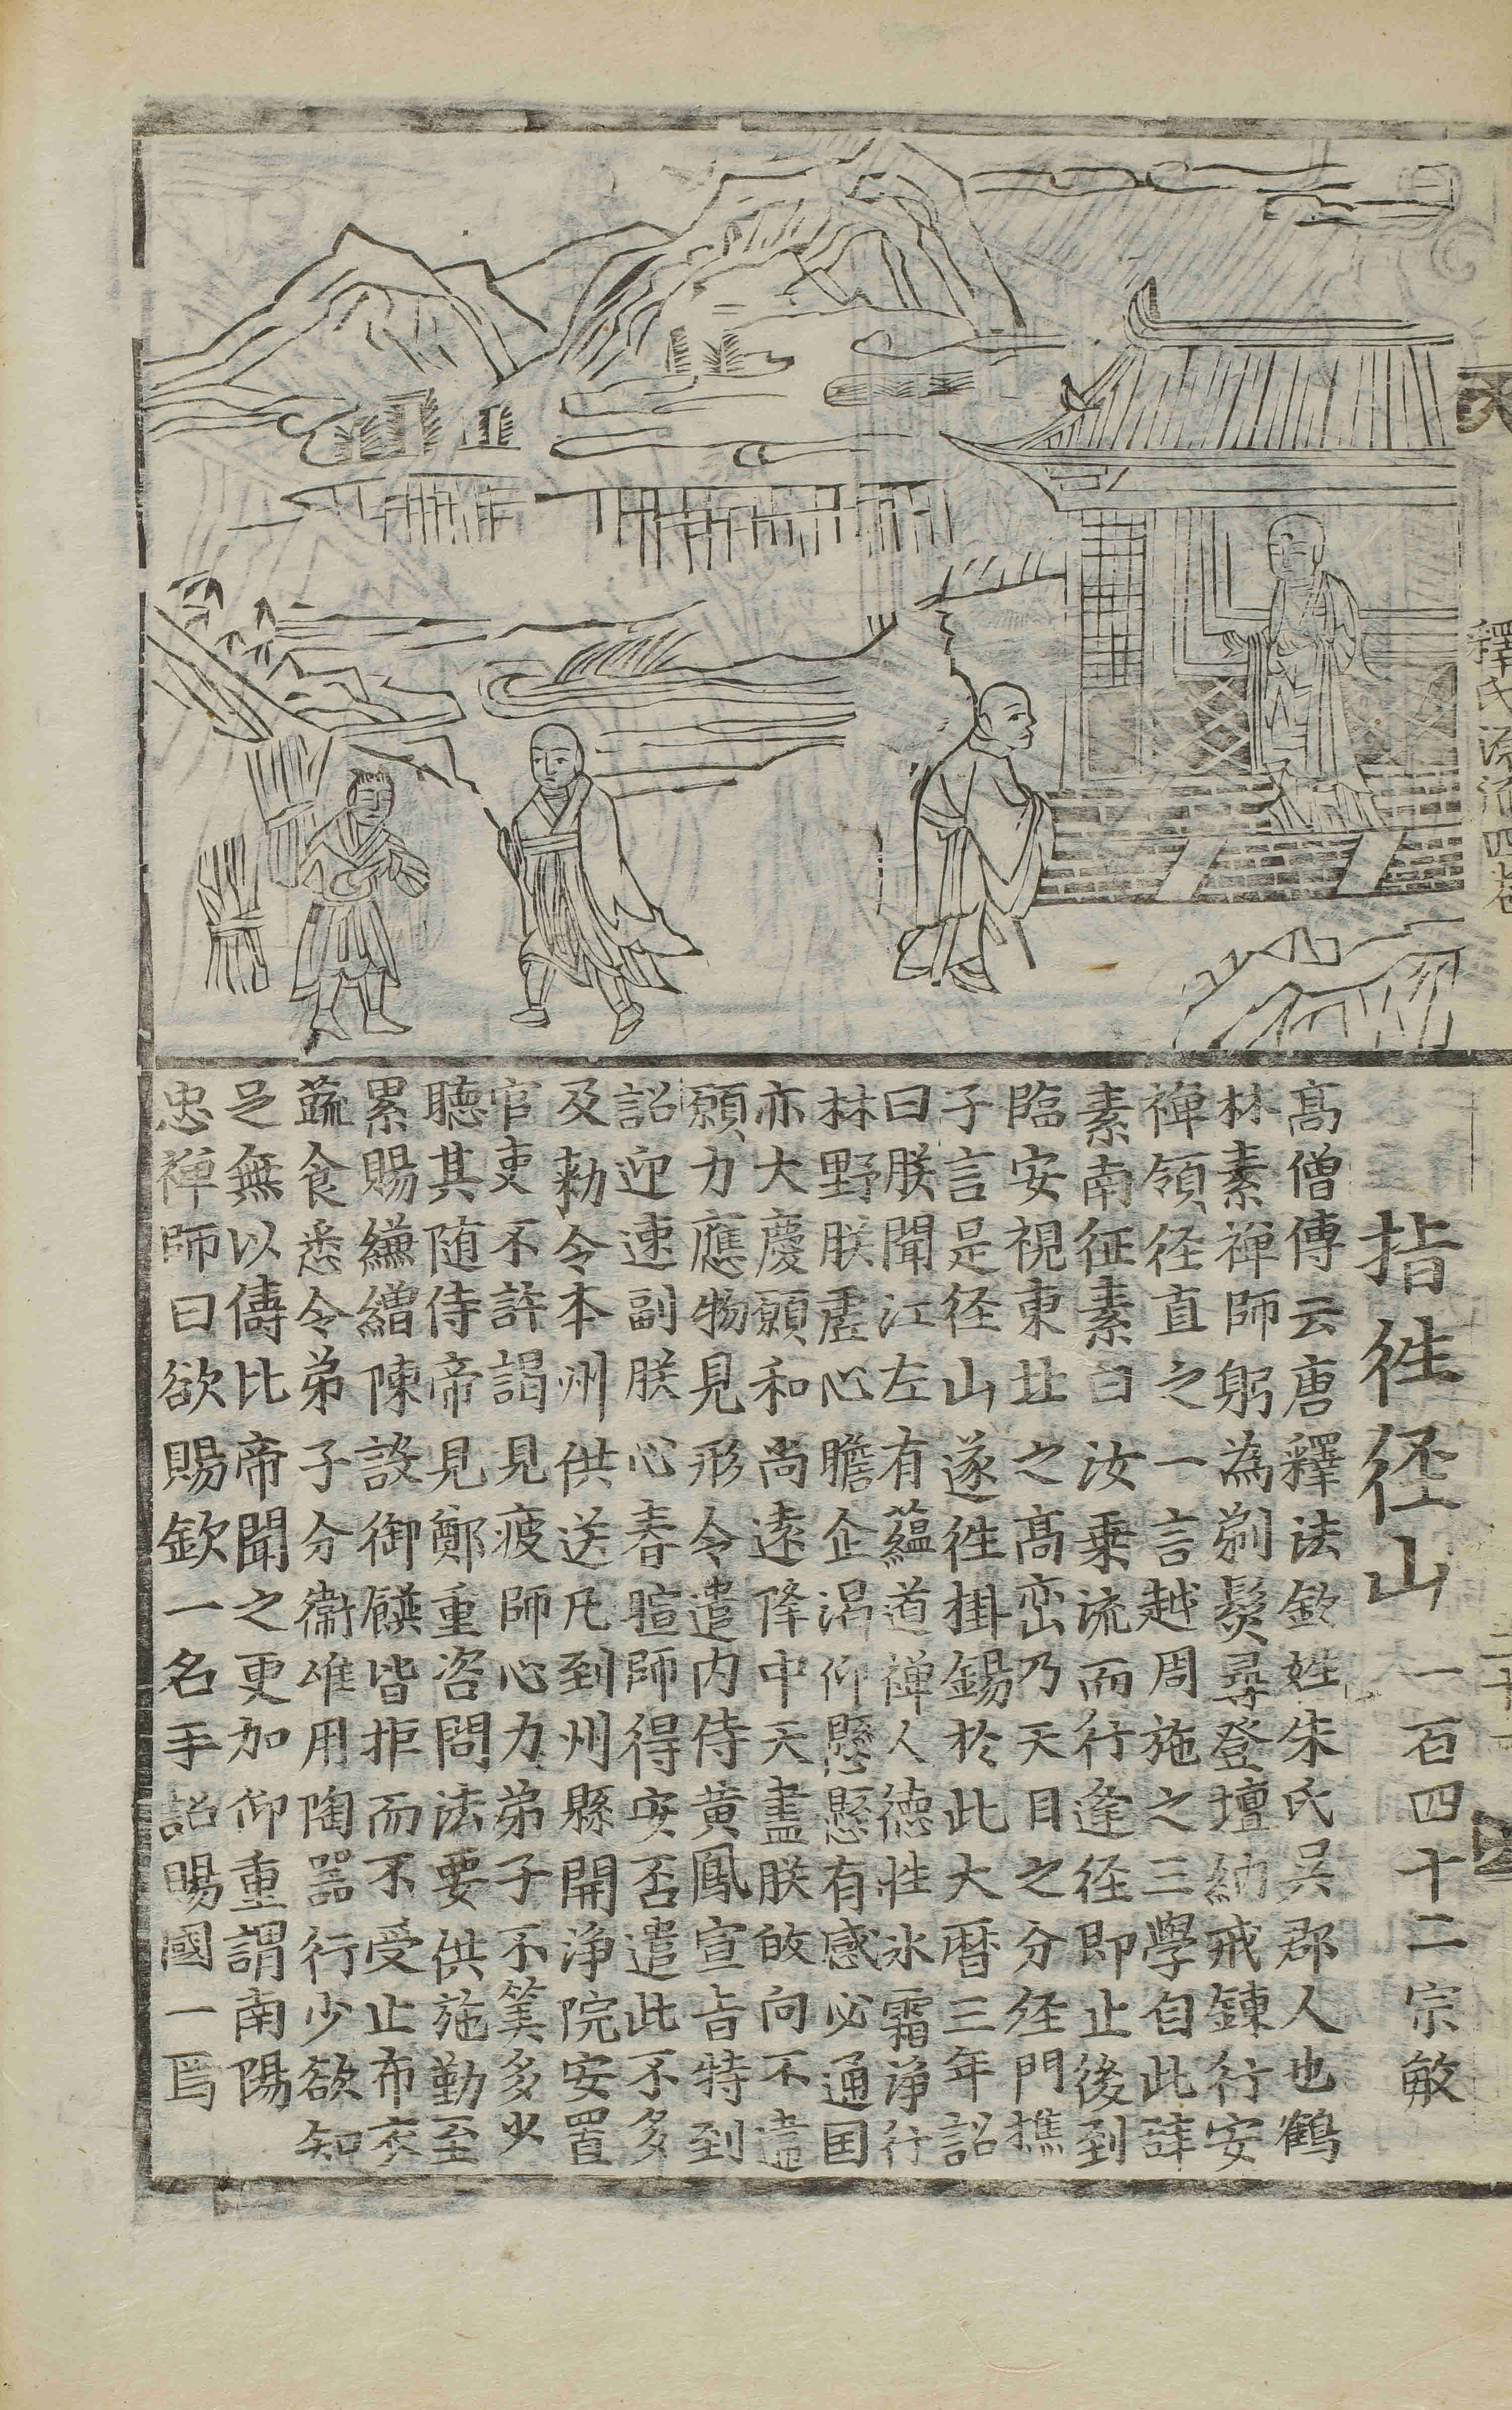 釋氏源流四卷
指徃径山 一百四十二宗敏
髙僧傳云唐釋法欽姓朱氏吴郡人也鶴
林素禅師躬為剃髮尋登壇納戒鍊行安
禅領径直之一言越周施之三學自此辝
素南征素曰汝乗流而行逢径即止後到
臨安視東北之髙峦乃天目之分径門樵
子言是径山遂徃掛錫於此大曆三年詔
曰朕聞江左有藴道禅人德性氷霜浄行
林野朕虚心瞻企渴仰懸懸有感必通国
亦大慶願和尚逺降中天盡朕皈向不違
願力應物見形令遣内侍黄鳳宣旨特到
詔迎速副朕心春暄師得安否遣此不多
及勑令本州供送凡到州縣開浄院安置
官吏不許謁見疲師心力弟子不筭多少
聽其随侍帝見鄭重咨問法要供施勤至
累賜縑繒陳設御饌皆拒而不受止布衣
蔬食悉令弟子分衞唯用陶噐行少欲知
足無以儔比帝聞之更加仰重謂南陽
忠禅師曰欲賜欽一名手詔賜國一焉